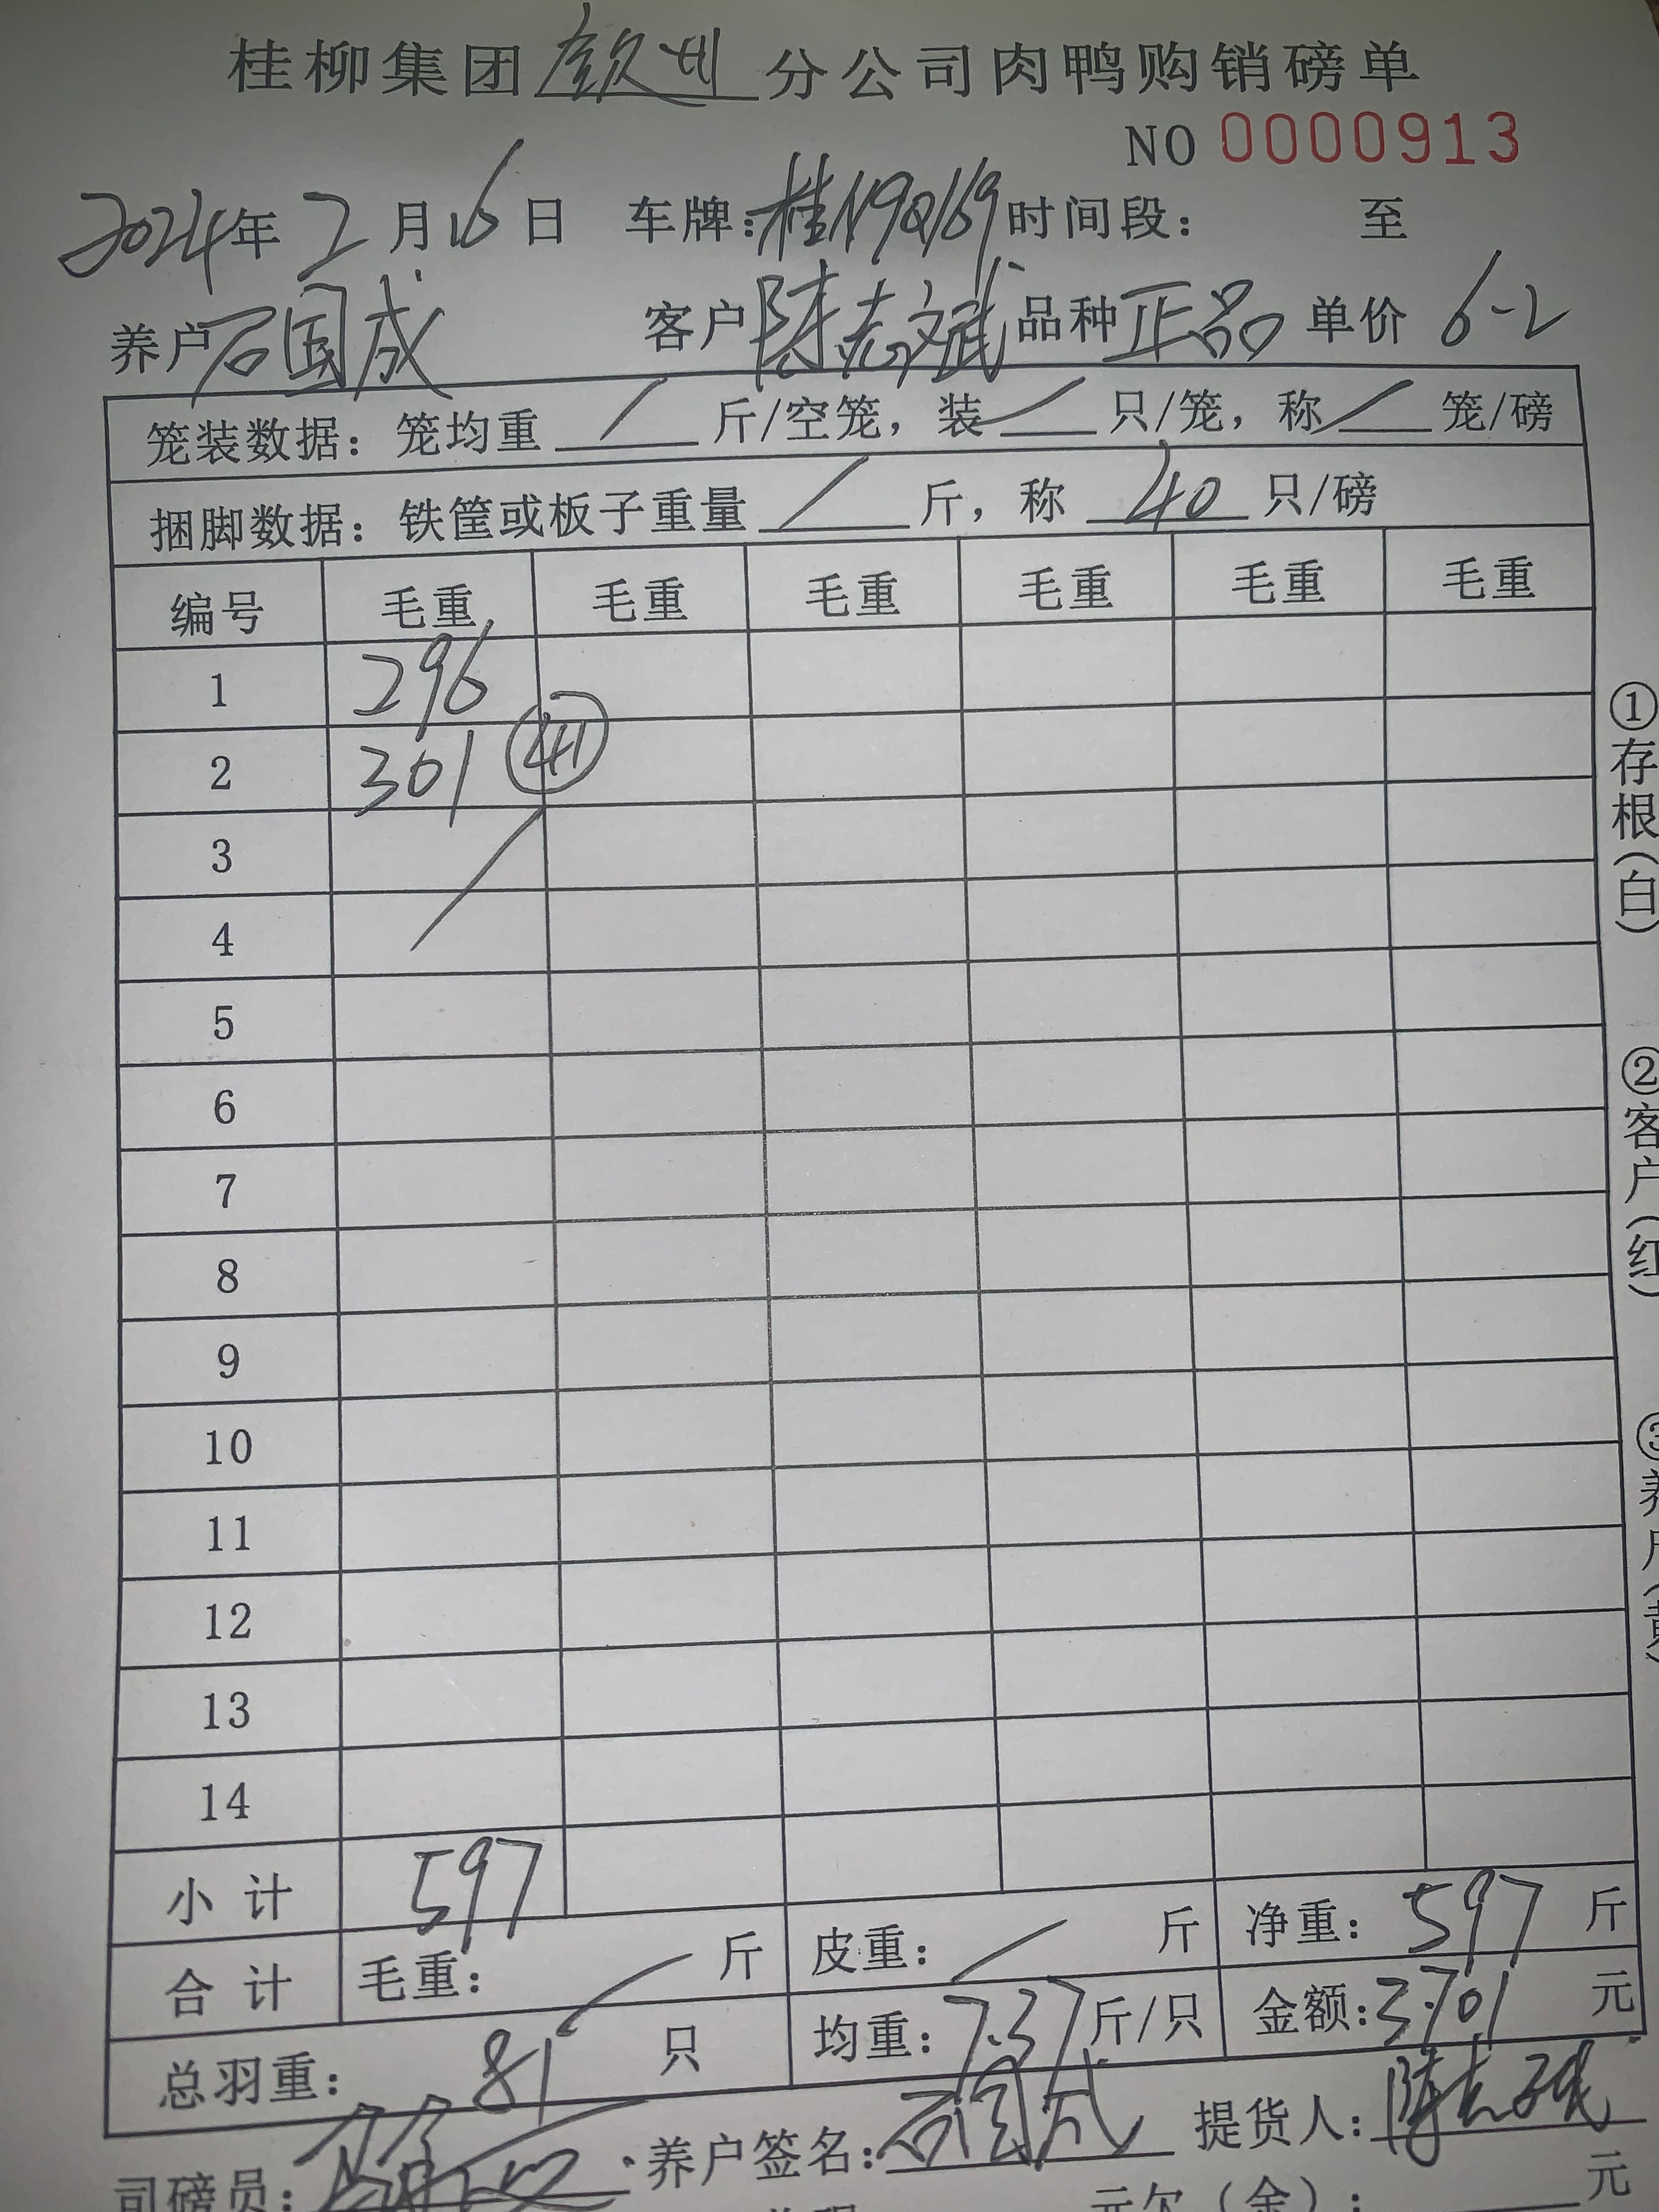 桂柳集团钦州分公司肉鸭购销磅单
NO 0000913
2024年2月16日 车牌:桂N9Q169 时间段: 至
养户石国成 客户陈志斌 品种正品 单价6-2
笼装数据: 笼均重 / 斤/空笼, 装 / 只/笼, 称 / 笼/磅
捆脚数据: 铁筐或板子重量 / 斤, 称 40 只/磅
编号 毛重 毛重 毛重 毛重 毛重 毛重
1 296
2 301 ㊶
3
4
5
6
7
8
9
10
11
12
13
14
小计 597
合计 毛重: / 斤 皮重: / 斤 净重: 597 斤
总羽重: 81 只 均重: 7.37 斤/只 金额: 3701 元
司磅员: 养户签名: 石国成 提货人: 陈志斌
元欠(余): 元
①存根(白)
②客户(红)
③养户(黄)